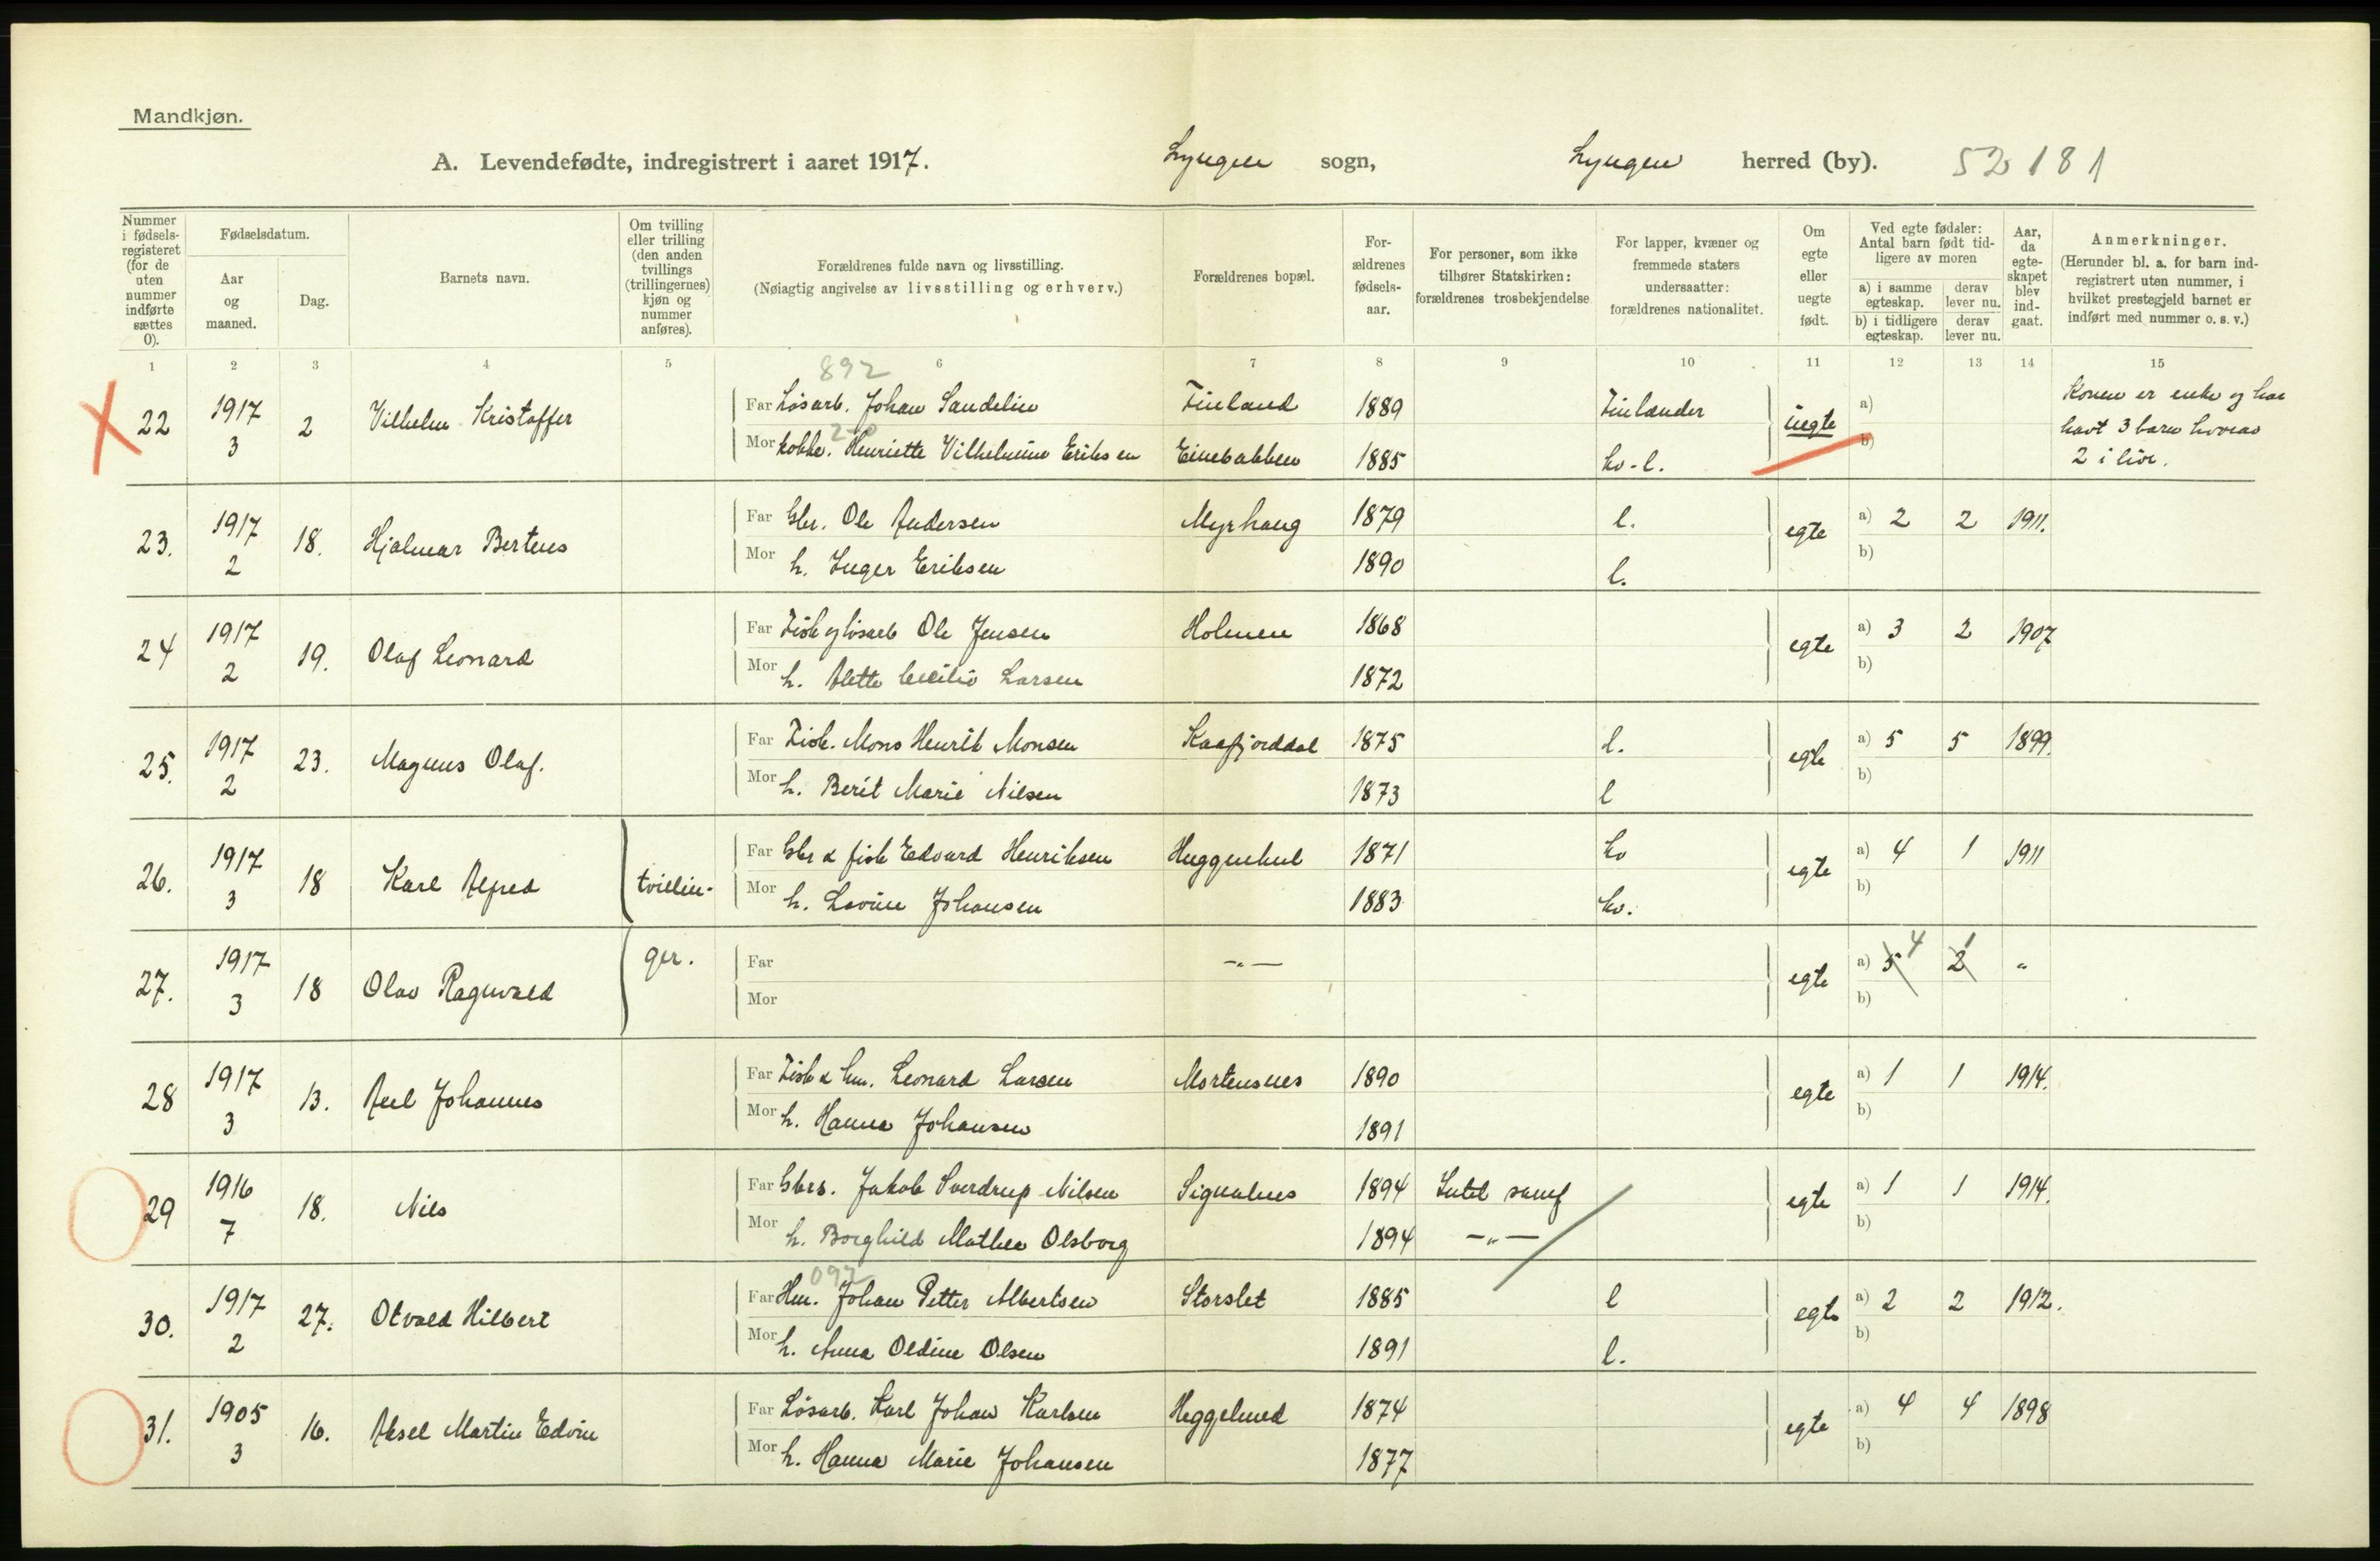 Mandkjøn.
A. Levendefødte, indregistrert i aaret 1917. Lyngen sogn, Lyngen herred (by). 52 181
Nummer i fødsels-registeret (for de uten nummer indførte sættes 0).
Fødselsdatum.
Aar og maaned.
Dag.
Barnets navn.
Om tvilling eller trilling (den anden tvillings (trillingernes) kjøn og nummer anføres).
Forældrenes fulde navn og livsstilling.
(Nøiagtig angivelse av livsstilling og erhverv.)
Forældrenes bopæl.
For-ældrenes fødsels-aar.
For personer, som ikke tilhører Statskirken: forældrenes trosbekjendelse
For lapper, kvæner og fremmede staters undersaatter: forældrenes nationalitet.
Om egte eller uegte født.
Ved egte fødsler: Antal barn født tid-ligere av moren
a) i samme egteskap.
derav lever nu.
b) i tidligere egteskap.
derav lever nu.
Aar, da egte-skapet blev ind-gaat.
Anmerkninger.
(Herunder bl. a. for barn ind-registrert uten nummer, i hvilket prestegjeld barnet er indført med nummer o. s. v.)
1 2 3 4 5 6 7 8 9 10 11 12 13 14 15
892
22 1917 3 2 Vilhelm Kristoffer Far Løsarb. Johan Sandelin Finland 1889 Finlænder uegte a)
Mor kokke. Henriette Vilhelmine Eriksen Einebakken 1885 kv-l. b)
Konen er enke og har
havt 3 barn hvorav
2 i live.
23. 1917 2 18. Hjalmar Berteus Far Gbr. Ole Andersen Myrhaug 1879 l. egte a) 2 2 1911.
Mor h. Inger Eriksen 1890 l. b)
24 1917 2 19. Olaf Leonard Far Fisk og løsarb Ole Jensen Holmen 1868 egte a) 3 2 1907
Mor h. Alette Cecilie Larsen 1872 b)
25. 1917 2 23. Magnus Olaf. Far Fisk. Mons Henrik Monsen Kaafjorddal 1875 l. egte a) 5 5 1899.
Mor h. Berit Marie Nilsen 1873 l b)
26. 1917 3 18 Karl Alfred tvillin- Far Gbr & fisk Edvard Henriksen 1871 kv egte a) 4 1 1911
Mor h. Lovine Johansen 1883 kv. b)
27. 1917 3 18 Olav Ragnvald ger. Far -"- egte a) 5 4 2 1 "
Mor b)
28 1917 3 13. Axel Johannes Far Fisk & hm. Leonard Larsen Mortensnes 1890 egte a) 1 1 1914.
Mor h. Hanna Johansen 1891 b)
29 1916 7 18. Nils Far Gbrs. Jakob Sverdrup Nilsen Signalnes 1894 Lutd. samf egte a) 1 1 1914.
Mor h. Borghild Mathea Olsborg 1894 -"- b)
092
30. 1917 2 27. Otvald Hilbert Far Hm. Johan Petter Albertsen Storslet 1885 l egte a) 2 2 1912.
Mor h. Anna Oldine Olsen 1891 l. b)
31. 1905 3 16. Aksel Martin Edvin Far Løsarb. Karl Johan Karlsen Heggelund 1874 egte a) 4 4 1898
Mor h. Hanna Marie Johansen 1877 b)